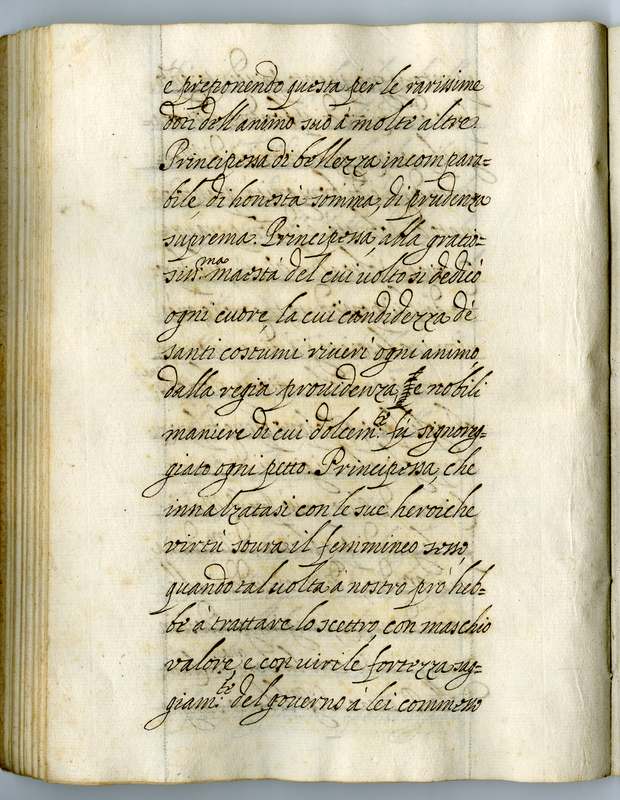 e preponendo questa per le rarissime
doti dell'animo suo à molte altre.
Principessa di bellezza incompara=
bile, di honestà somma, di prudenza
suprema. Principessa, alla gratio=
siss.ma maestà del cui uolto si dedicò
ogni cuore, la cui candidezza de'
santi costumi riuerì ogni animo,
dalla regia prouidenza, e nobili
maniere di cui dolcem.te fù signoreg=
giato ogni petto. Principessa, che
innalzatasi con le sue heroiche
virtù soura il femmineo sesso,
quando tal uolta à nostro prò heb=
be à trattare lo scettro, con maschio
valore, e con virile fortezza sag=
giam.te del gouerno à lei commesso